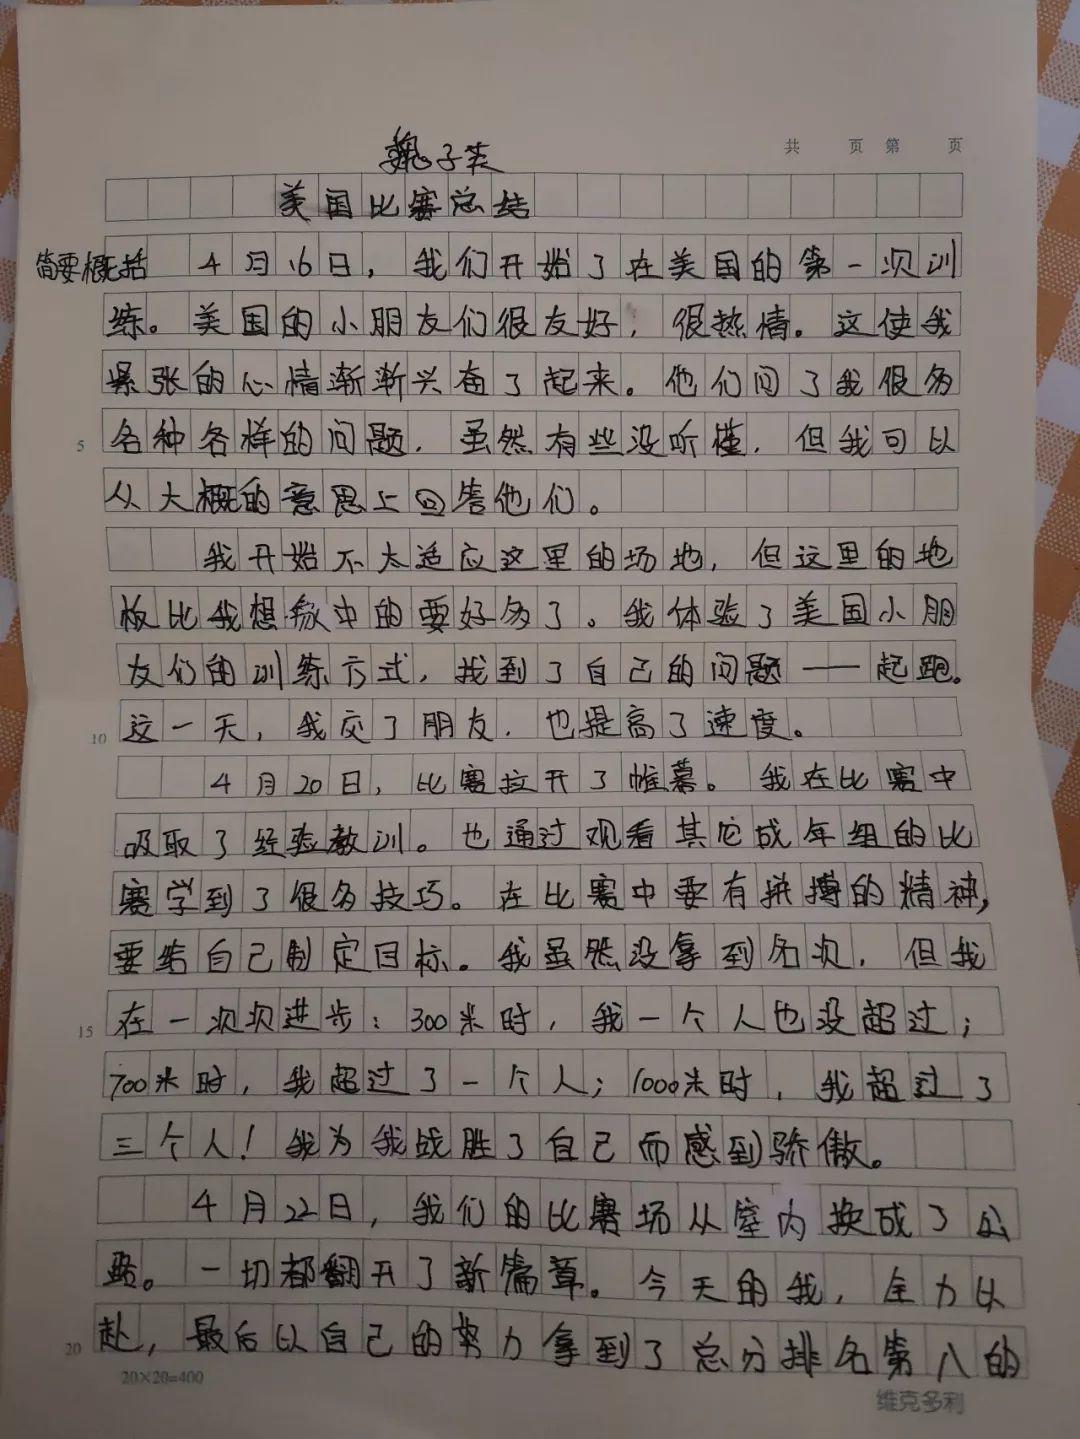 共 页 第 页
魏子
美国比赛总结
简要概括 4月16日，我们开始了在美国的第一次训
练。美国的小朋友们很友好，很热情。这使我
紧张的心情渐渐兴奋了起来。他们问了我很多
5 各种各样的问题，虽然有些没听懂，但我可以
从大概的意思上回答他们。
我开始不太适应这里的场地，但这里的地
板比我想象中的要好多了。我体验了美国小朋
友们的训练方式，找到了自己的问题——起跑。
10 这一天，我交了朋友，也提高了速度。
4月20日，比赛拉开了帷幕。我在比赛中
吸取了经验教训。也通过观看其它成年组的比
赛学到了很多技巧。在比赛中要有拼搏的精神，
要给自己制定目标。我虽然没拿到名次，但我
15 在一次次进步：300米时，我一个人也没超过；
700米时，我超过了一个人；1000米时，我超过了
三个人！我为我战胜了自己而感到骄傲。
4月22日，我们的比赛场从室内换成了公
路。一切都翻开了新篇章。今天的我，全力以
20 赴，最后以自己的努力拿到了总分排名第八的
20×20=400
维克多利